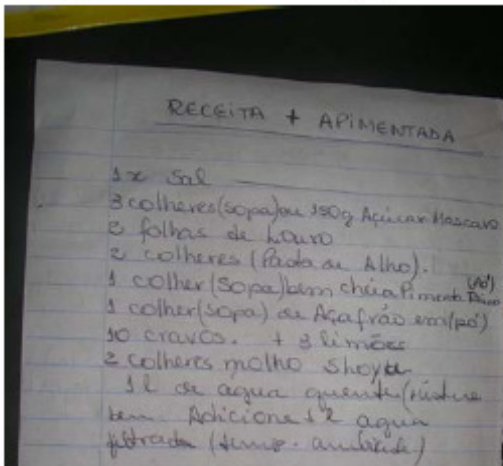 RECEITA + APIMENTADA
1x Sal
3 colheres (sopa) ou 150g Açúcar Mascavo
3 folhas de Louro
2 colheres (Pasta de Alho).
1 colher (Sopa) bem cheia Pimenta (Pó)
1 colher (sopa) de Açafrão em (pó)
10 cravos. + 3 limões
2 colheres molho Shoyu
1 l de agua quente (misture
bem. Adicione 1 l agua
filtrada (temp. ambiente)